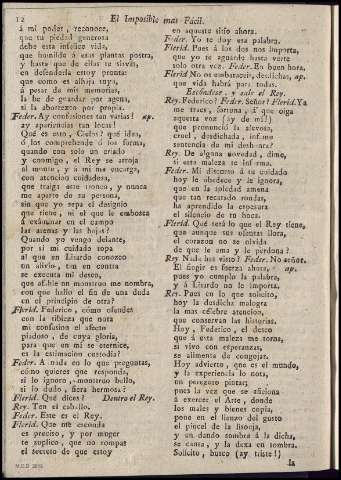 12 El Imposible mas Fácil.
á mi poder, reconoce,
que tu piedad generosa
debe esta infelice vida,
que humilde á esas plantas postra,
y hasta que de ellas te sirvas,
en defenderla estoy pronta:
que como es alhaja tuya,
á pesar de mis memorias,
la he de guardar por agena,
si la aborrezco por propia.
Feder. Ay confusiones tan varias! ap.
ay apariencias tan locas!
Qué es esto, Cielos! qué idea,
ó los comprehende ó los forma,
quando con solo un criado
y enemigo, el Rey se arroja
al monte, y á mi me encarga,
con atencion cuidadosa,
que traiga este tronco, y nunca
me aparte de su persona,
sin que yo sepa el designio
que tiene, ni el que le embosca
á exâminar en el campo
las arenas y las hojas?
Quando yo vengo delante,
por si mi cuidado topa
al que en Lisardo conozco
un alivio, tan en contra
se executa mi deseo,
que afable un monstruo me nombra,
con que hallo el fin de una duda
en el principio de otra?
Flerid. Federico, cómo ofendes
con la tibieza que nota
mi confusion el afecto
piadoso, de cuya gloria,
para que en mi se eternice,
es la estimacion custodia?
Feder. A nada en lo que preguntas,
cómo quieres que responda,
si lo ignoro, monstruo bello,
si lo dudo, fiera hermosa?
Flerid. Qué dices? Dentro el Rey.
Rey. Ten el caballo.
Feder. Este es el Rey.
Flerid. Que me esconda
es preciso, y por muger
te suplico, que no rompas
el secreto de que estoy
en aqueste sitio ahora.
Feder. Yo te doy esa palabra.
Flerid. Pues á los dos nos importa,
que yo te aguarde hasta verte
solo otra vez. Feder. En buen hora.
Flerid. No os embaraceis, desdichas, ap.
que vida habrá para todas.
Escóndese, y sale el Rey.
Rey. Federico? Feder. Señor! Flerid. Ya
me trae, fortuna, á que oiga
aquesta voz (ay de mi!)
que pronunció la alevosa,
cruel, desdichada, infame
sentencia de mi deshonra?
Rey. De alguna novedad, dime,
si esta maleza te informa.
Feder. Mi discurso á tu cuidado
hoy le obedece y le ignora,
que en la soledad amena
que tan recatado rondas,
ha aprendido la espesura
el silencio de tu boca.
Flerid. Qué será lo que el Rey tiene,
que aunque sus ofensas llora,
el corazon se olvida
de que le ama y le perdona?
Rey. Nada has visto? Feder. No señor.
El fingir es fuerza ahora, ap.
pues yo cumplo la palabra,
y á Lisardo no le importa.
Rey. Pues en lo que solicito,
hoy la desdicha malogra
la mas célebre atencion,
que conservan las historias.
Hoy, Federico, el deseo
que á esta maleza me torna,
si vivo con esperanzas,
se alimenta de congojas.
Hoy advierto, que es el mundo,
y la experiencia lo nota,
un perezoso pintar;
pues la vez que se aficiona
á exercer el Arte, donde
los males y bienes copia,
pone en el lienzo del gusto
el pincel de la lisonja,
y en dando sombra á la dicha,
se cansa, y la dexa en sombra.
Solicito, busco (ay triste!)
la